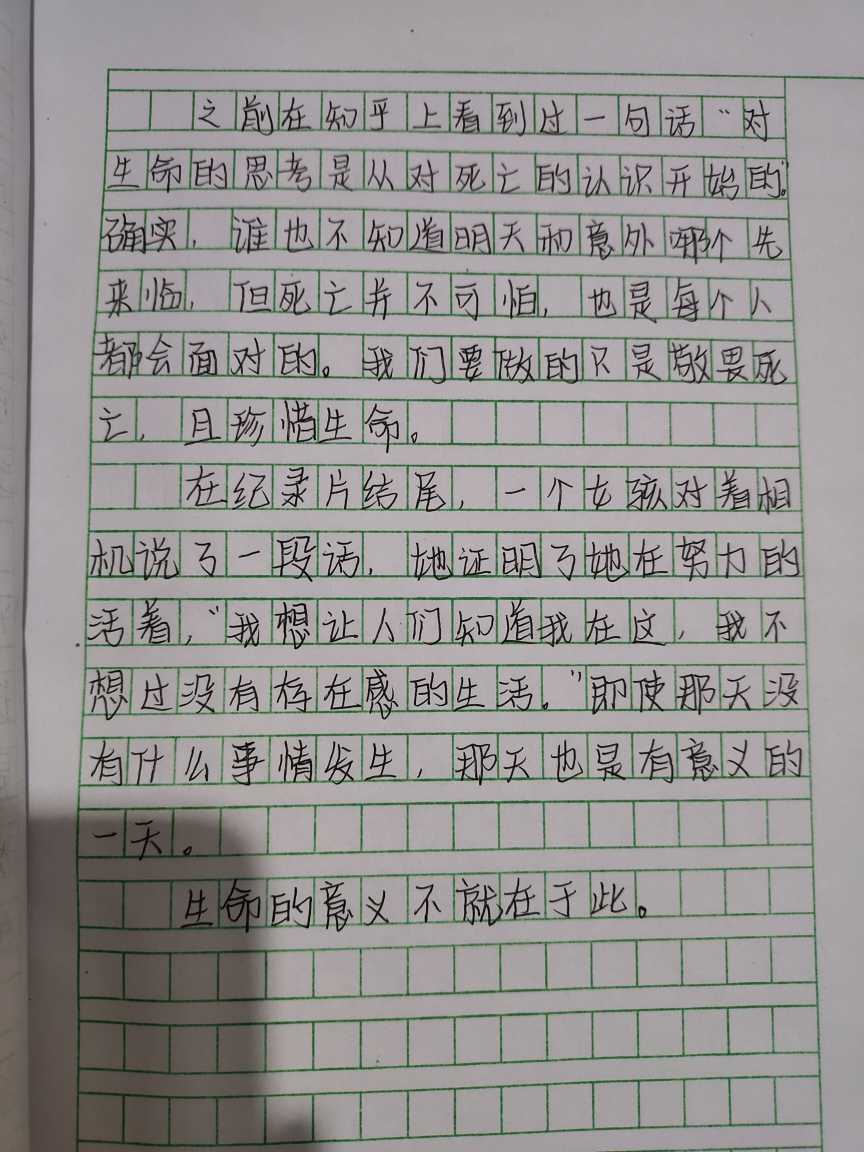 之前在知乎上看到过一句话“对
生命的思考是从对死亡的认识开始的。”
确实，谁也不知道明天和意外哪个先
来临，但死亡并不可怕，也是每个人
都会面对的。我们要做的只是敬畏死
亡，且珍惜生命。
在纪录片结尾，一个女孩对着相
机说了一段话，她证明了她在努力的
活着，“我想让人们知道我在这，我不
想过没有存在感的生活。”即使那天没
有什么事情发生，那天也是有意义的
一天。
生命的意义不就在于此。